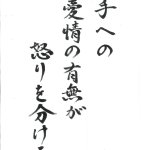 手への
愛情の有無が
怒りを分ける